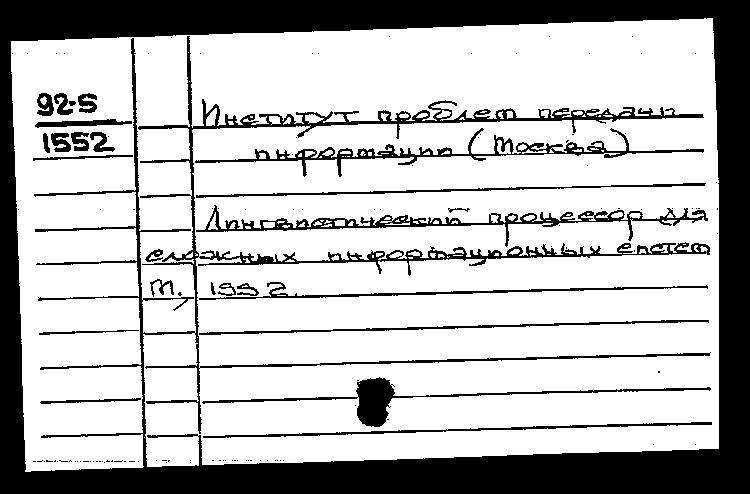 92-5
1552
Институт проблем передачи
информации (Москва)
Лингвистический процессор для
сложных информационных систем
М., 1992.